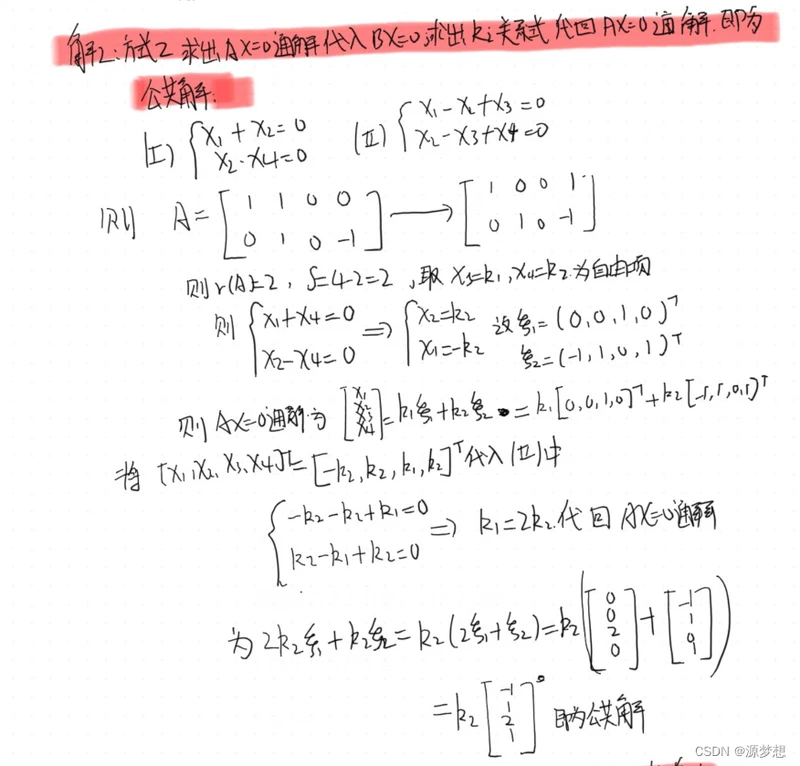 解2:方式2 求出AX=0通解代入BX=0,求出ki关系式代回AX=0通解.即为
公共解:
(I) { x₁+x₂=0 x₂-x₄=0 (II) { x₁-x₂+x₃=0 x₂-x₃+x4=0
则 A= [ 1 1 0 0 0 1 0 -1 ] → [ 1 0 0 1 0 1 0 -1 ]
则 r(A)=2, S=4-2=2, 取 x₃=k₁, x₄=k₂ 为自由项
则 { x₁+x₄=0 x₂-x₄=0 ⇒ { x₂=k₂ x₁=-k₂ 故 ξ₁=(0,0,1,0)ᵀ ξ₂=(-1,1,0,1)ᵀ
则 AX=0通解为 [ x₁ x₂ x₃ x₄ ] = k₁ξ₁+k₂ξ₂ = k₁[0,0,1,0]ᵀ+k₂[-1,1,0,1]ᵀ
将 [x₁,x₂,x₃,x₄]ᵀ=[-k₂,k₂,k₁,k₂]ᵀ代入(II)中
{ -k₂-k₂+k₁=0 k₂-k₁+k₂=0 ⇒ k₁=2k₂.代回 AX=0通解
为 2k₂ξ₁+k₂ξ₂=k₂(2ξ₁+ξ₂)=k₂( [ 0 0 2 0 ] + [ -1 1 0 1 ] )
=k₂ [ -1 1 2 1 ] 。即为公共解
CSDN @源梦想